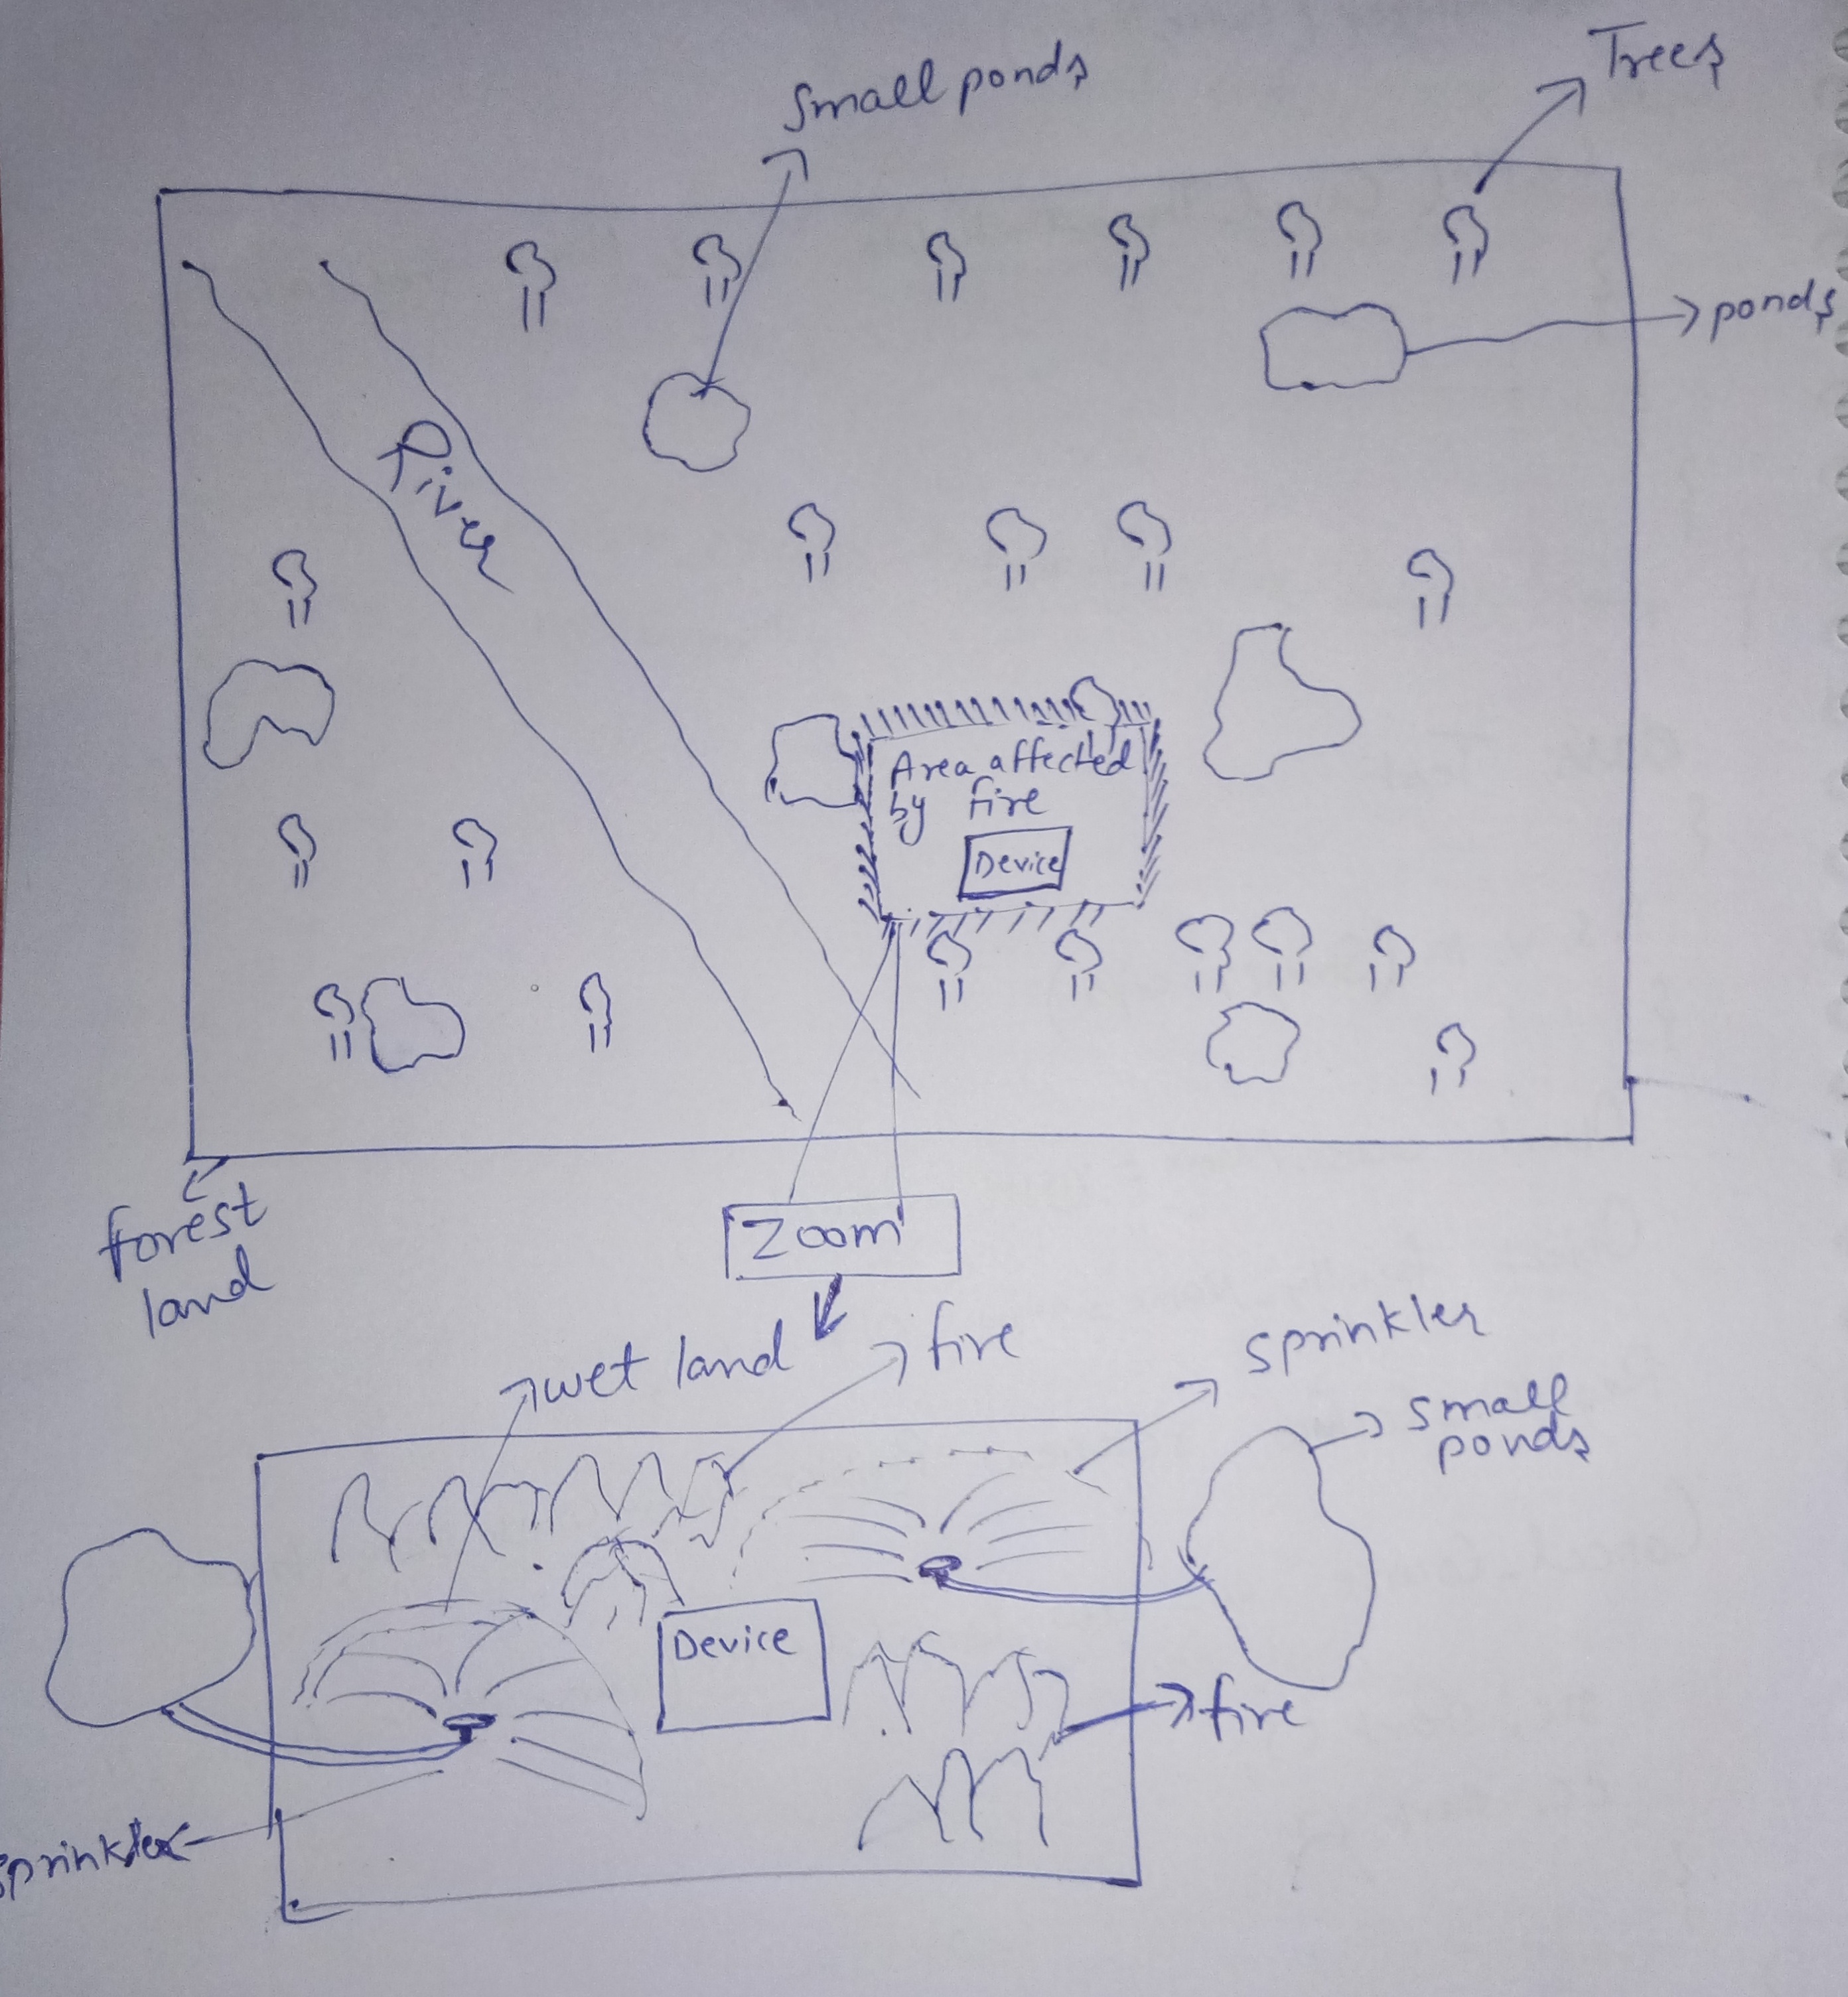 Trees
small ponds
ponds
River
Area affected
by fire
Device
forest
land
Zoom
wet land
fire
sprinkler
small
ponds
Device
fire
sprinkler